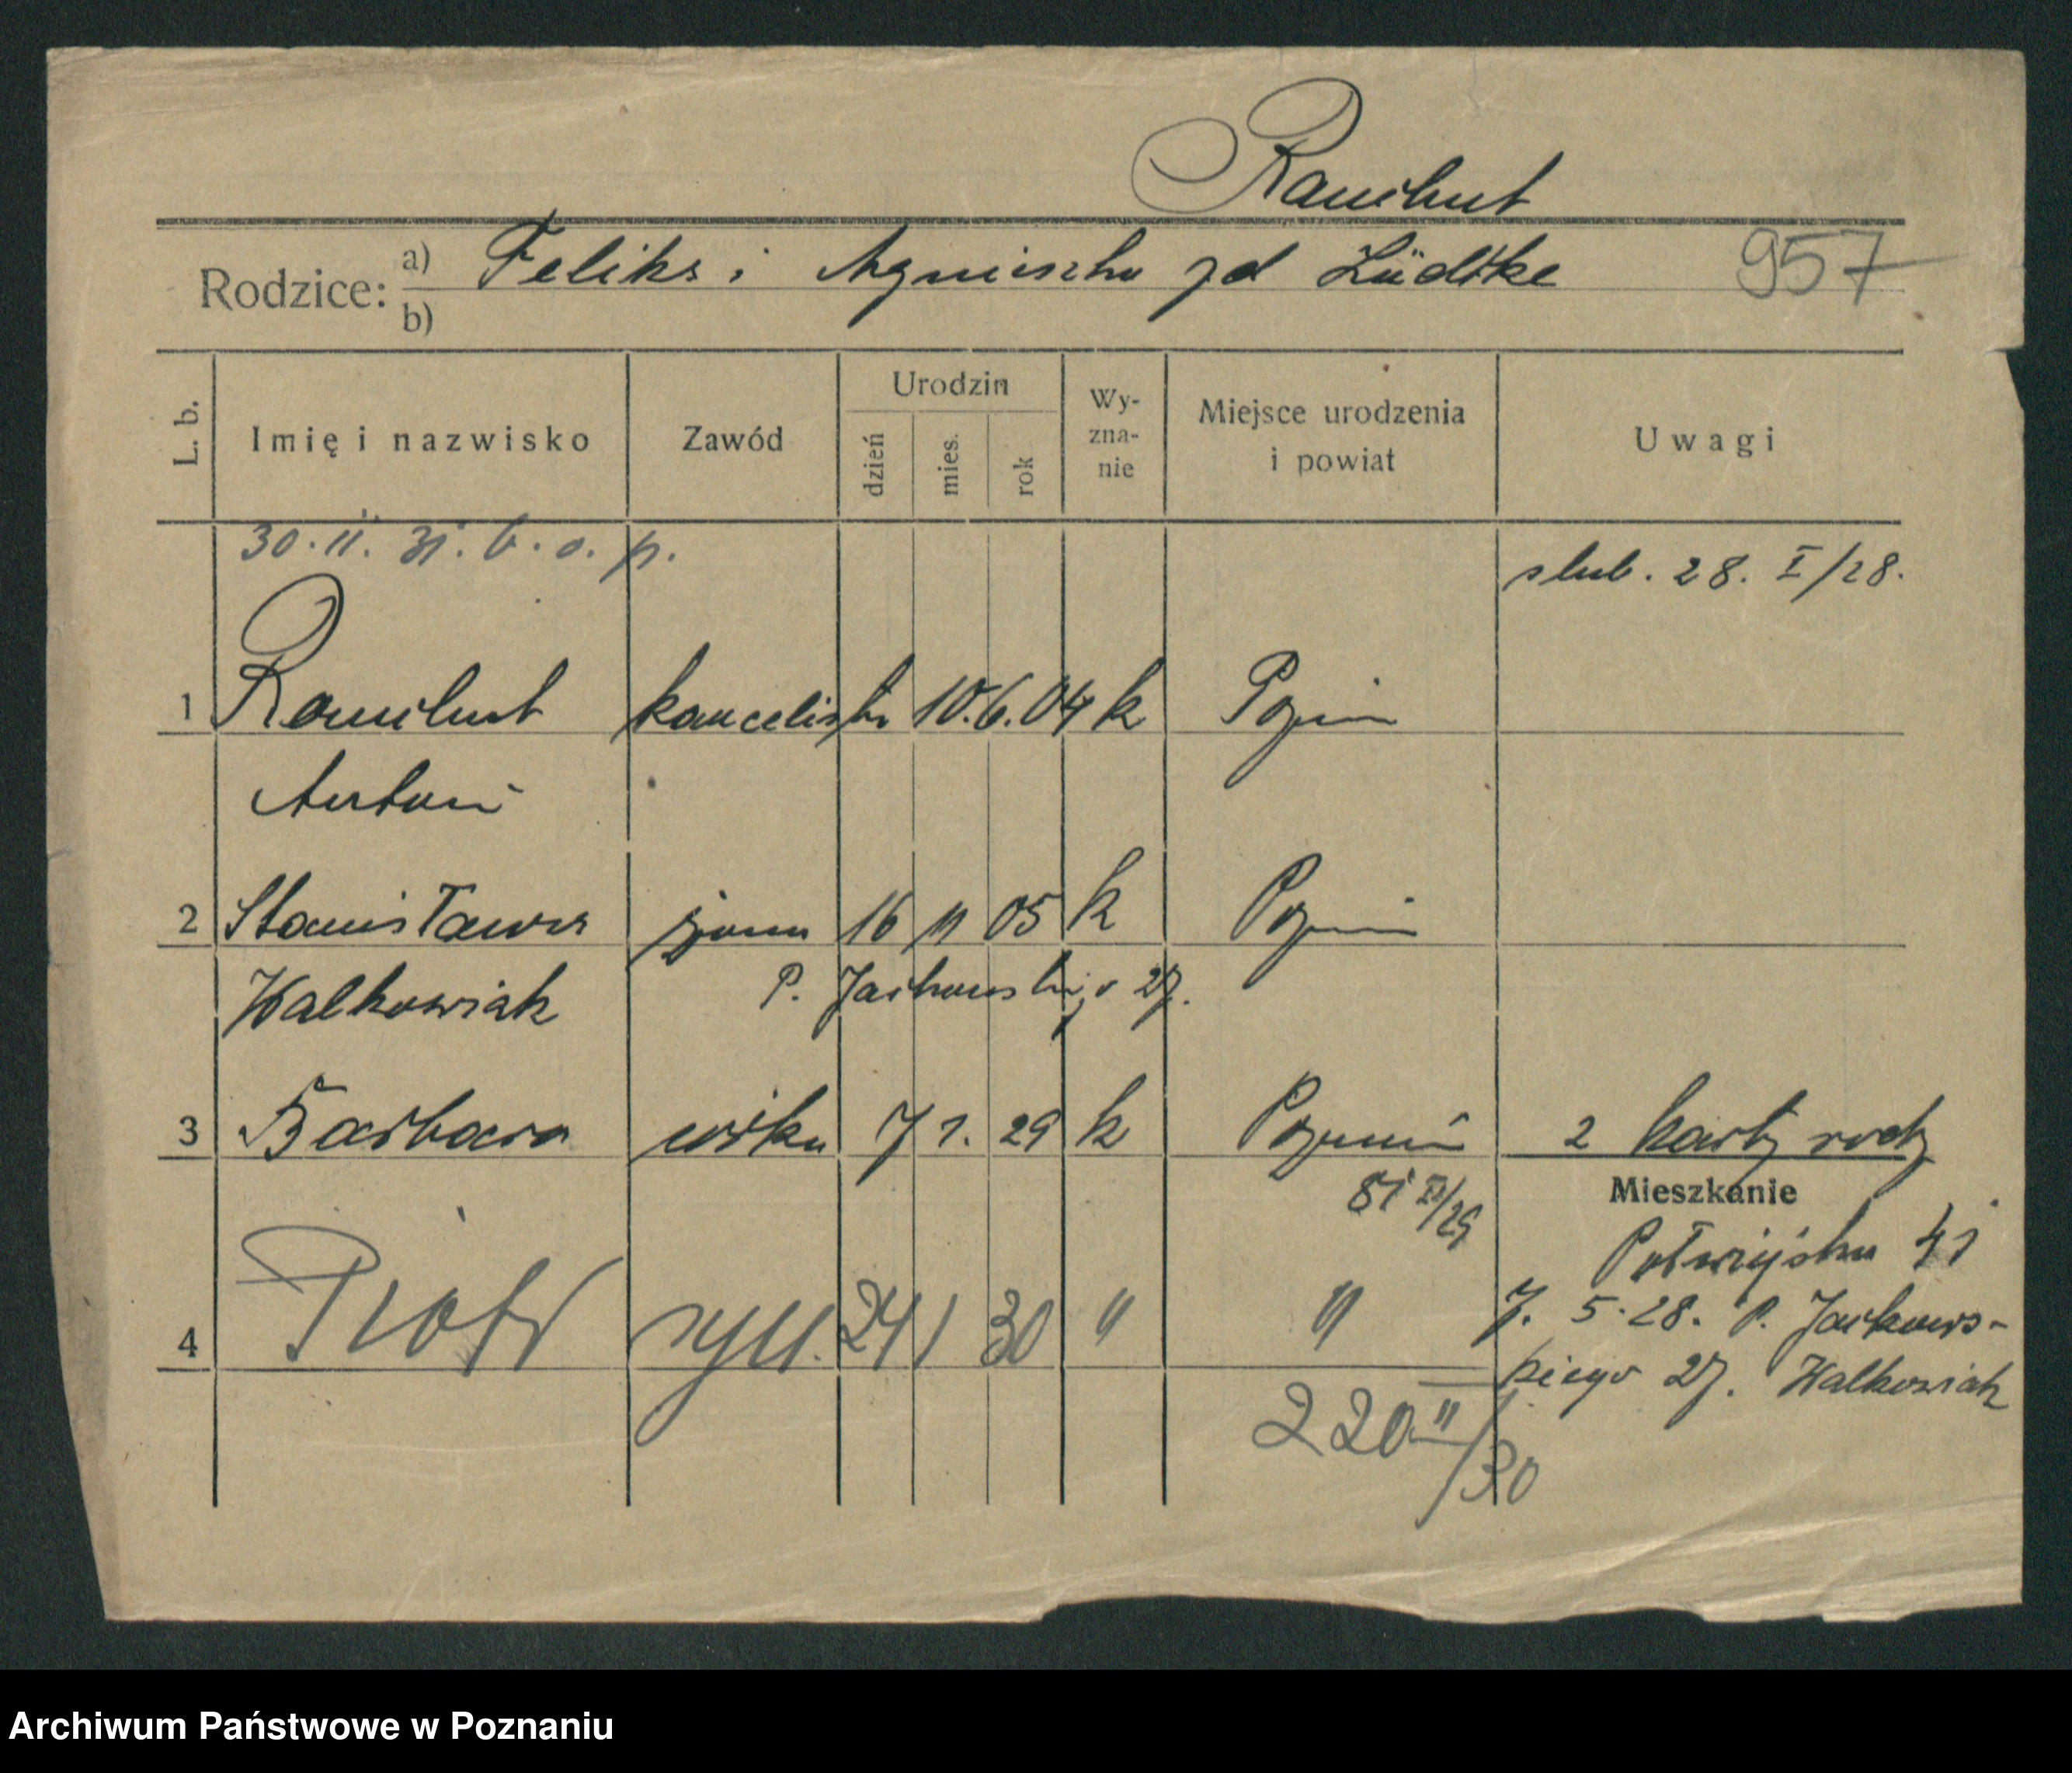 Ramchut
Rodzice: a) Feliks i Agnieszka zd Lüdtke 957
b)
L. b. Imię i nazwisko Zawód Urodzin dzień mies. rok Wy-zna-nie Miejsce urodzenia i powiat Uwagi
30. 11. 31. b. o. p.
slub. 28. I/28.
1 kancelista 10. 6. 04 k Poznań
Antoni
2 Stanisława żona 16 11 05 k Poznań
Walkowiak P. Jackowskiego 27.
3 Barbara córka 7 1. 29 k Poznań 2 karty rodz
81 II/29
Mieszkanie
Półwiejska 41
4 Piotr syn 24 1 30 " "
7. 5. 28. P. Jackows-
kiego 27. Walkowiak
220 II/30
Archiwum Państwowe w Poznaniu